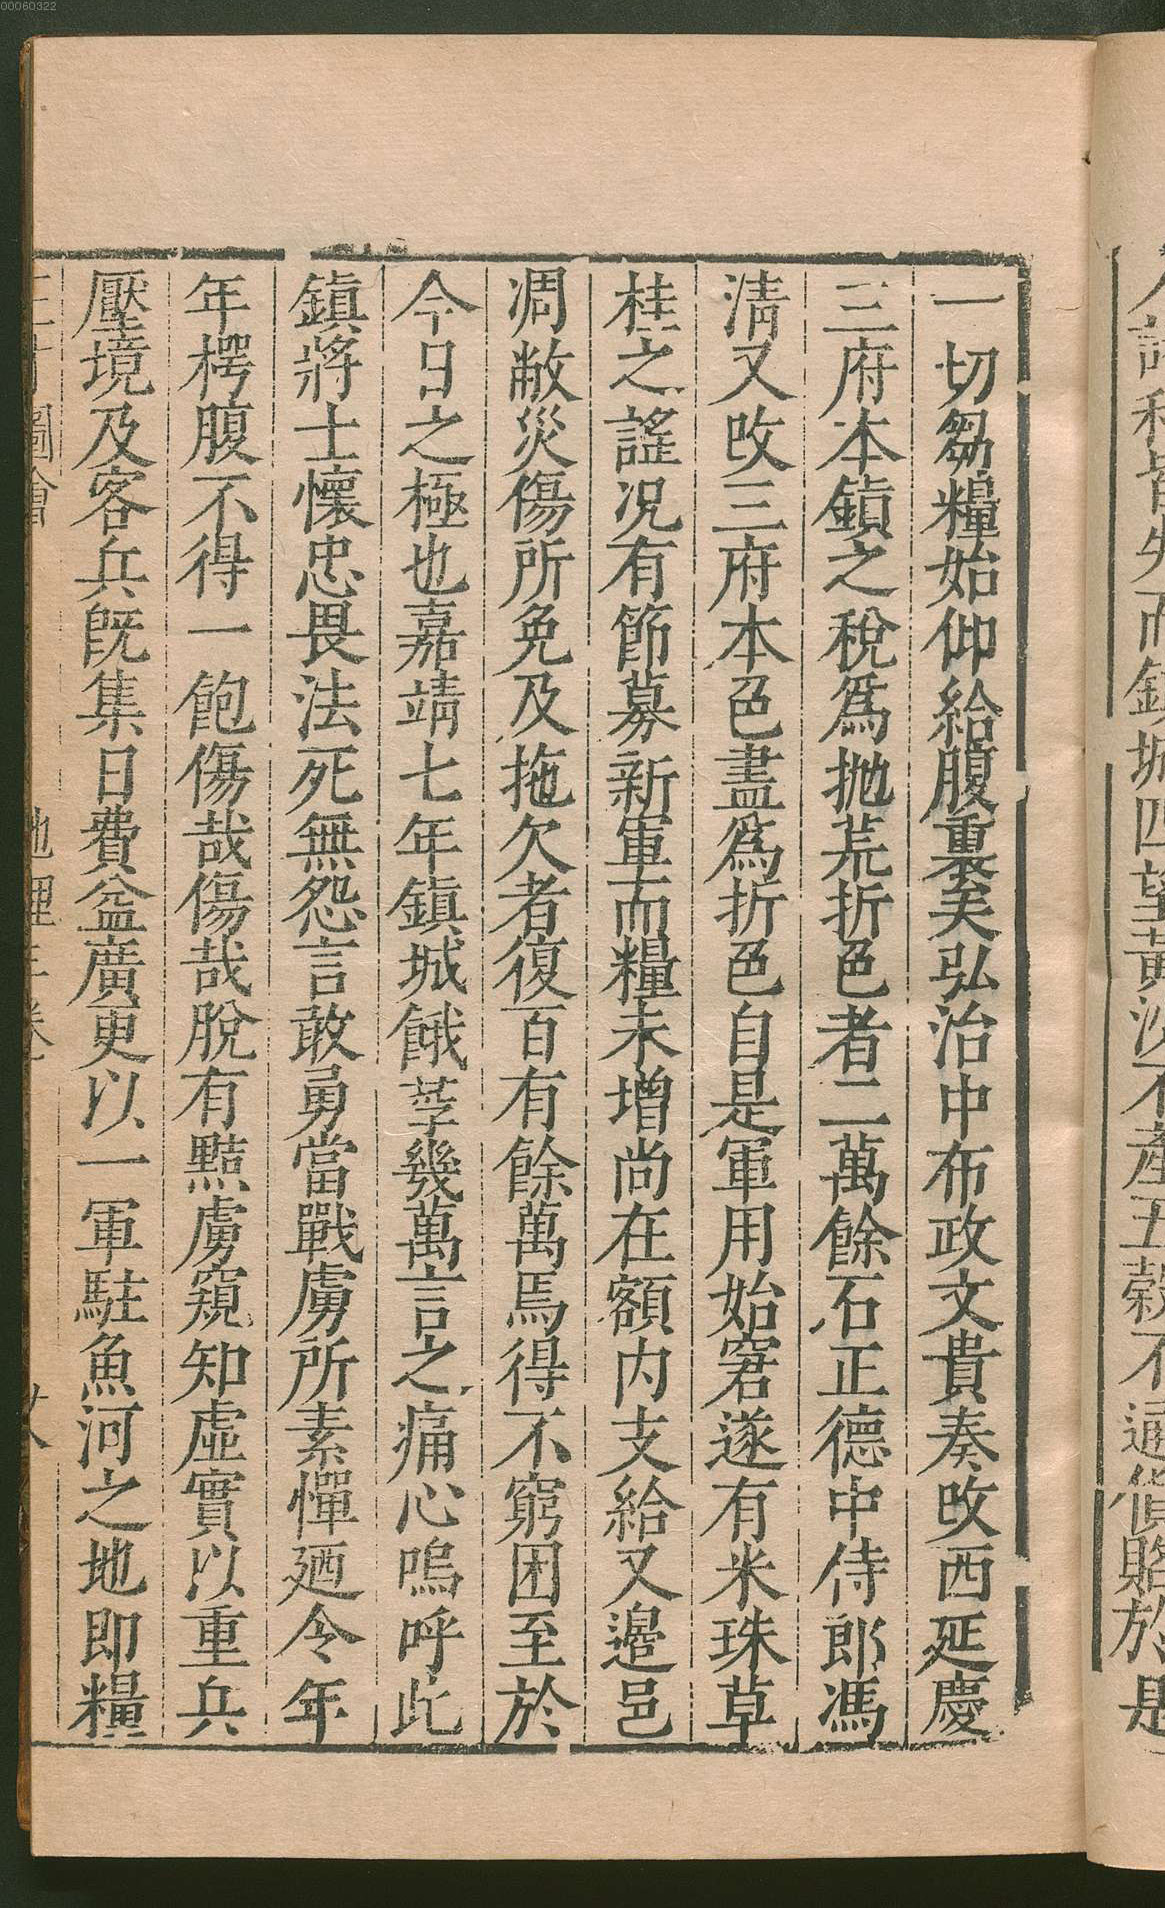 00060322
一切芻糧始仰給腹裏矣弘治中布政文貴奏改西延慶
三府本鎮之稅爲拋荒折色者二萬餘石正德中侍郎馮
清又改三府本色盡爲折色自是軍用始窘遂有米珠草
桂之謠况有節募新軍而糧未增尚在額内支給又邊邑
凋敝災傷所免及拖欠者復百有餘萬焉得不窮困至於
今日之極也嘉靖七年鎮城餓莩幾萬言之痛心嗚呼此
鎮將士懷忠畏法死無怨言敢勇當戰虜所素憚廼今年
年枵腹不得一飽傷哉傷哉脫有黠虜窺知虛實以重兵
壓境及客兵旣集日費益廣更以一軍駐魚河之地即糧
圖會 地理三卷